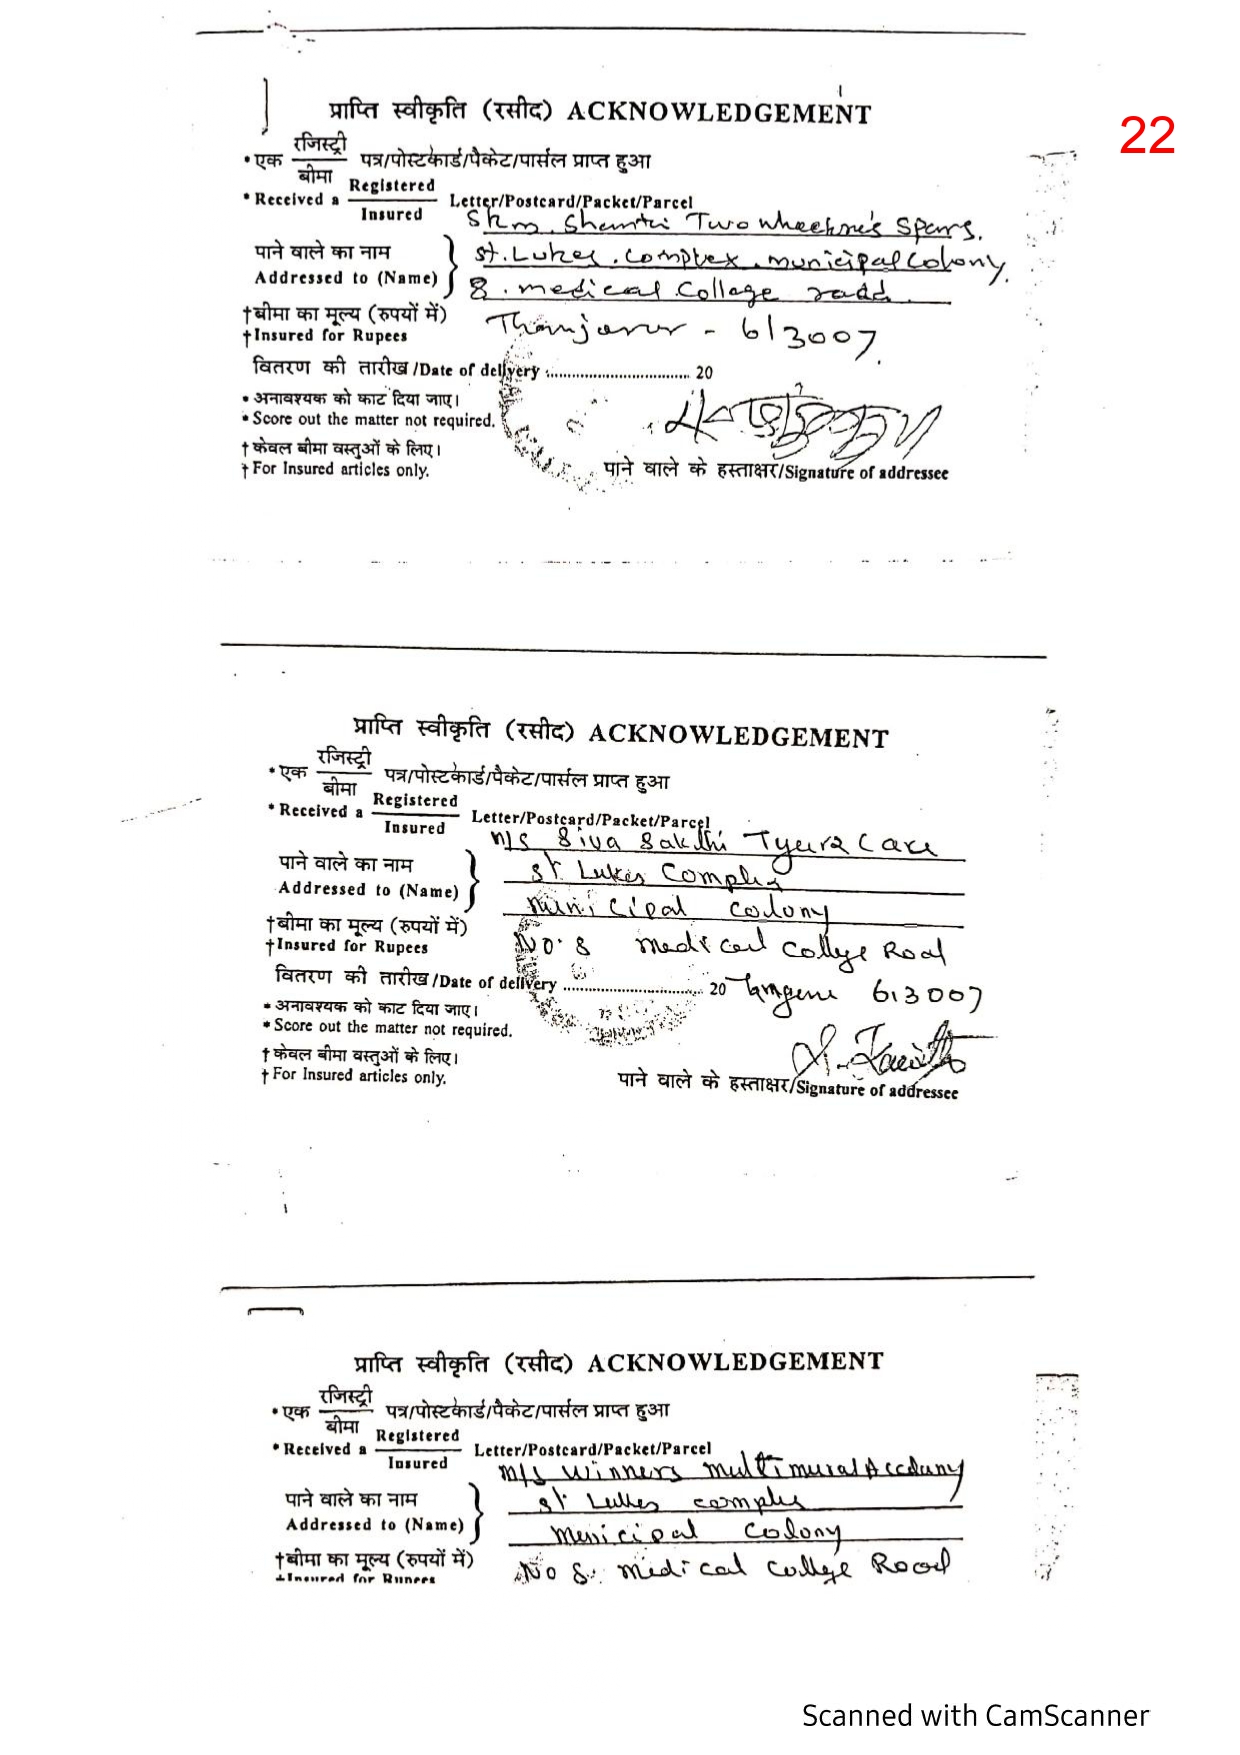 22
प्राप्ति स्वीकृति (रसीद) ACKNOWLEDGEMENT
*एक रजिस्ट्री/बीमा पत्र/पोस्टकार्ड/पैकेट/पार्सल प्राप्त हुआ
*Received a Registered/Insured Letter/Postcard/Packet/Parcel
Skm. Shanthi Two
पाने वाले का नाम
St. Lukes. Complex. municipal Colony,
Addressed to (Name)
8. medical College road.
†बीमा का मूल्य (रुपयों में)
†Insured for Rupees
Thanjavur - 613007.
वितरण की तारीख/Date of delivery .......... 20
*अनावश्यक को काट दिया जाए।
*Score out the matter not required.
†केवल बीमा वस्तुओं के लिए।
†For Insured articles only.
पाने वाले के हस्ताक्षर/Signature of addressee
प्राप्ति स्वीकृति (रसीद) ACKNOWLEDGEMENT
*एक रजिस्ट्री/बीमा पत्र/पोस्टकार्ड/पैकेट/पार्सल प्राप्त हुआ
*Received a Registered/Insured Letter/Postcard/Packet/Parcel
M/S Siva Sakthi Care
पाने वाले का नाम
St Lukes Complex
Addressed to (Name)
Municipal colony
†बीमा का मूल्य (रुपयों में)
†Insured for Rupees
No. 8 Medical College Road
वितरण की तारीख/Date of delivery .......... 20 613007
*अनावश्यक को काट दिया जाए।
*Score out the matter not required.
†केवल बीमा वस्तुओं के लिए।
†For Insured articles only.
पाने वाले के हस्ताक्षर/Signature of addressee
प्राप्ति स्वीकृति (रसीद) ACKNOWLEDGEMENT
*एक रजिस्ट्री/बीमा पत्र/पोस्टकार्ड/पैकेट/पार्सल प्राप्त हुआ
*Received a Registered/Insured Letter/Postcard/Packet/Parcel
M/S Winners
पाने वाले का नाम
St Lukes complex
Addressed to (Name)
Municipal Colony
†बीमा का मूल्य (रुपयों में)
†Insured for Rupees
No 8. Medical College Road
Scanned with CamScanner